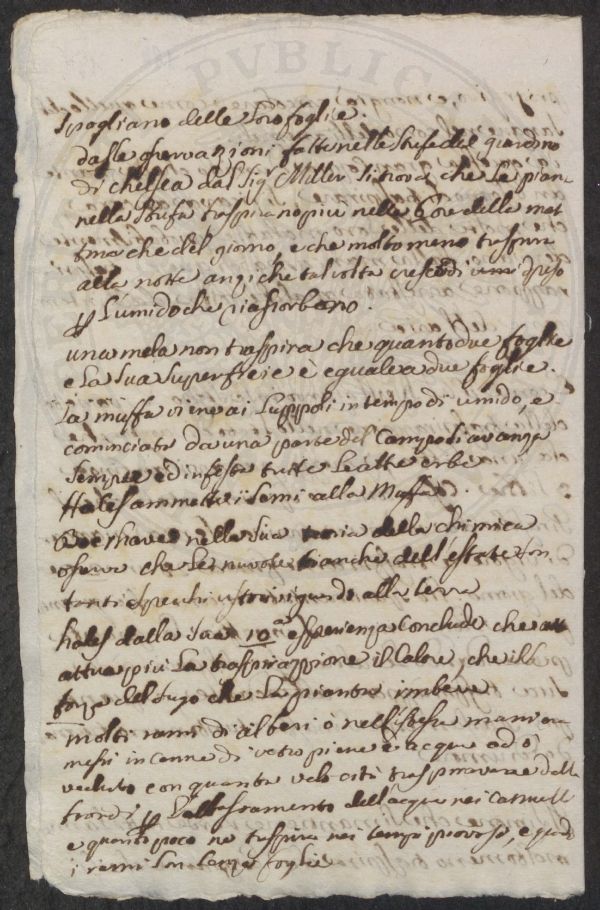 spogliano delle loro foglie.
dalle osservazioni fatte nelle stufe del giardino
di Chelsea dal Sigr Miller si trova che le pian
nella stufa traspirano piu nelle Core della mat
tina che del giorno, e che molto meno traspira
alla notte anzi che tal volta crescon di peso
P l'umido che assorbano.
una mela non traspira che quanto due foglie
e la sua superficie è eguale a due foglie.
la muffa viene ai Luppoli in tempo di umido, e
cominciata da una parte del Campo si avanza
sempre ed infesta tutte le altre erbe
Hales ammette i semi alla Muffa.
Boerhave nella sua teoria della chimica
osserva che le nuvole bianche dell'estate son
tanti specchi ustori riguardo alla terra
hales dalla sua 10a esperienza Conclude che
attua piu la traspirazzione il Calore, che la
forza del sugo che la pianta imbeve
molti rami di alberi ò nell'istessa maniera
messi in canne di vetro piene e acqua ed ò
veduto con quanta velocità traspiravano dalle
frondi P l'abbassamento dell'acqua nei Cannelli
e quanto poco ne traspira nei tempi piovosi, e quando
i rami son senza foglie